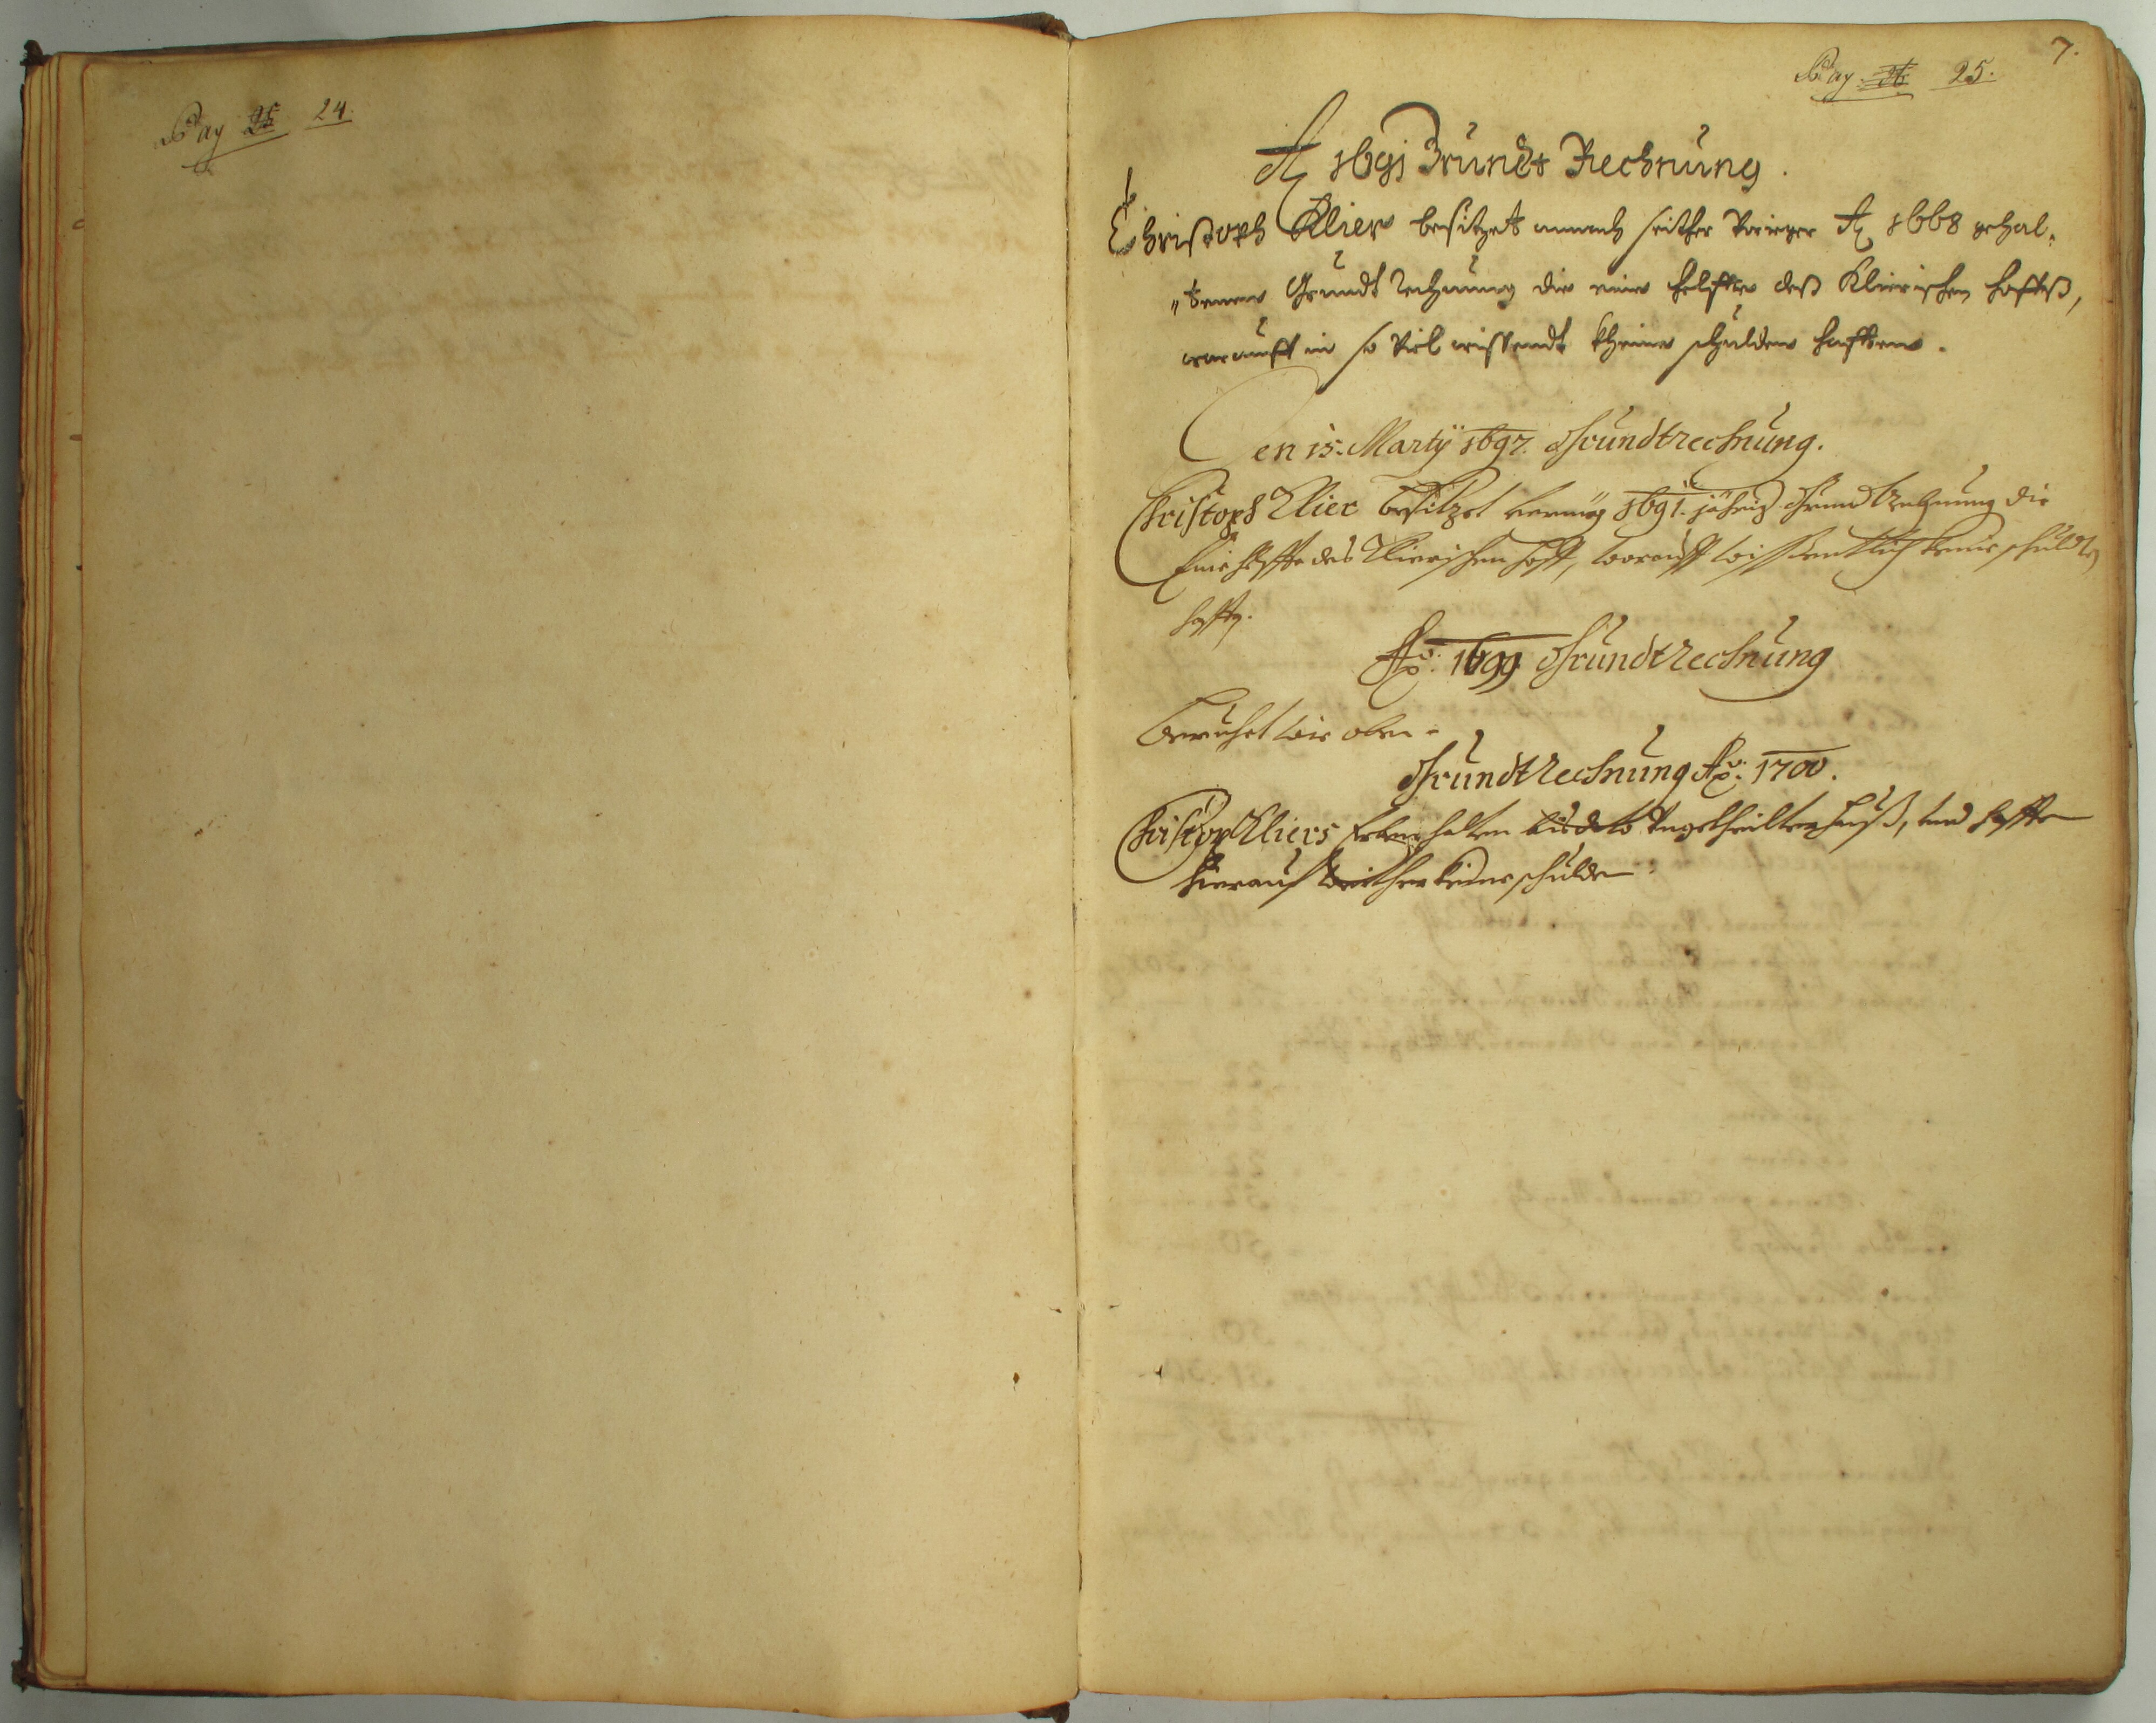 Pag 25 24.
7.
Pag. 26 25.
Ao 1691 Grundt Rechnung.
Christoph Klier besitzet annoch seither voriger Ao 1668 gehal-
"tener Grundt Rechnung die eine helffte deß Klierischen hoffeß,
worauff in so viel wissendt kheine schulden hafften.
Den 15. Martÿ 1697. Grundtrechnung.
Christoph Klier besitzet vermög 1691. jährig. Grundtrechnung die
Eine helffte des Klierischen hoff, worauff wissentlich keine schulden
hafften.
Ao: 1699 Grundtrechnung
Beruhet wie oben.
Grundtrechnung Ao: 1700.
Christoph Kliers Erben halten bis dato hauß, und hafften
hierauf keine schulden.